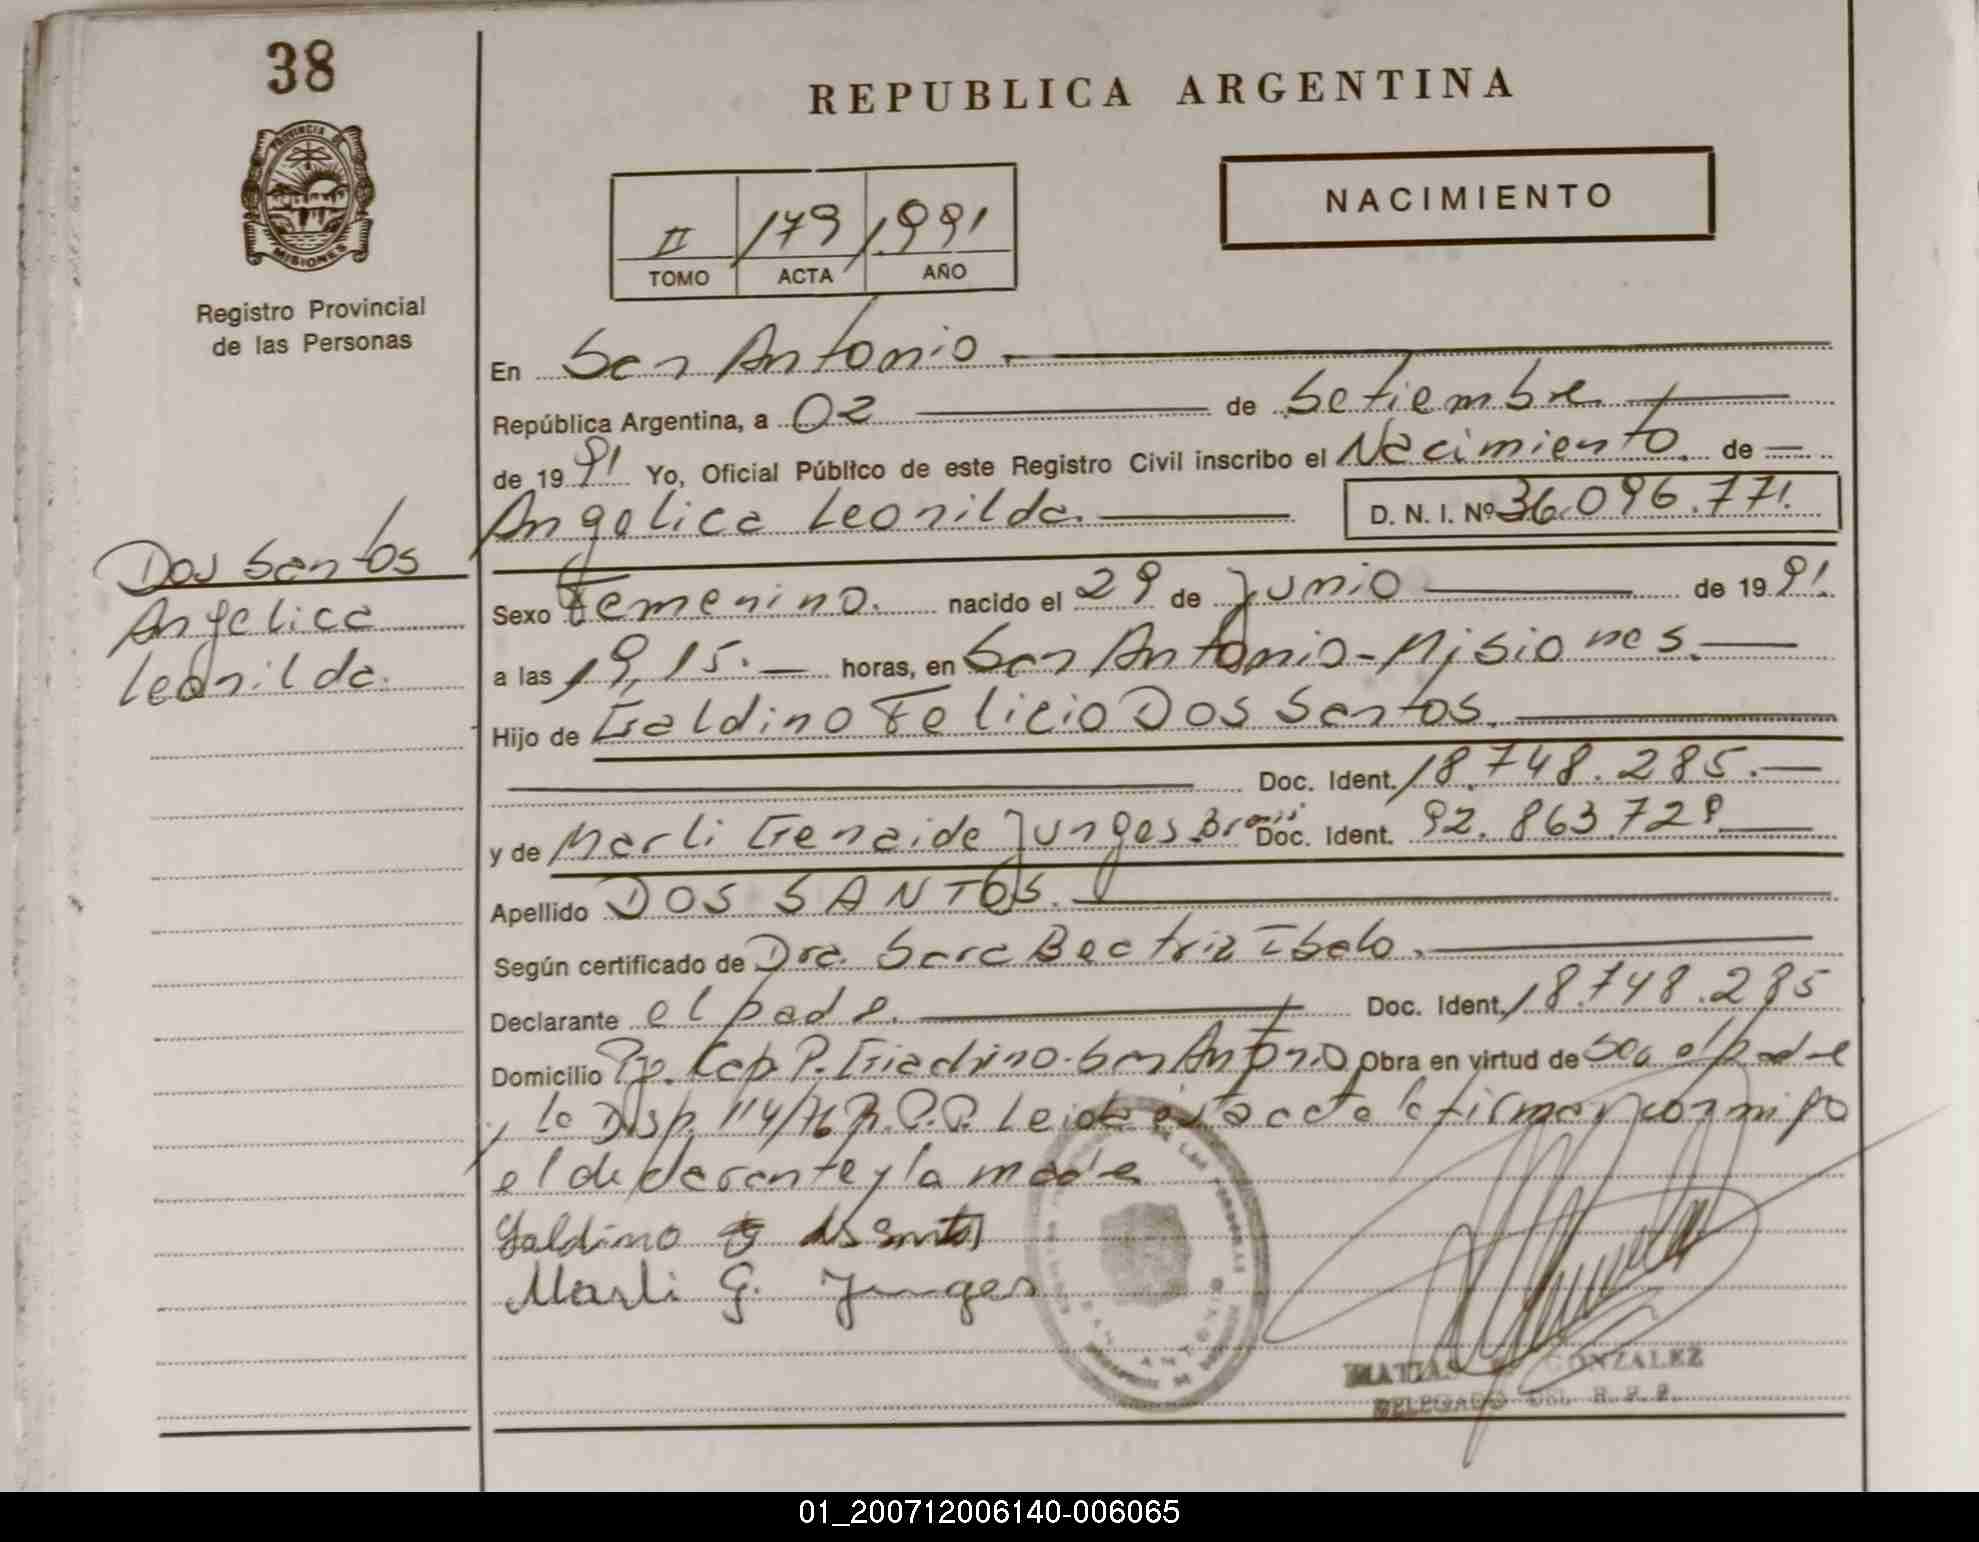 38
PROVINCIA DE
MISIONES
Registro Provincial
de las Personas
REPUBLICA ARGENTINA
NACIMIENTO
II 179 1991
TOMO ACTA AÑO
En San Antonio
República Argentina, a 02 de Setiembre
de 1991 Yo, Oficial Público de este Registro Civil inscribo el Nacimiento de
Angelica Leonilda. D. N. I. Nº 36.096.771.
Dos Santos
Angelica
Leonilda.
Sexo Femenino. nacido el 29 de Junio de 1991.
a las 19,15. horas, en San Antonio-Misiones.
Hijo de Galdino Felicio Dos Santos.
Doc. Ident. 18.748.285.
y de Marli Genaide Junges. Doc. Ident. 92.863.729
Apellido DOS SANTOS.
Según certificado de Dra. Sara Beatriz
Declarante el padre. Doc. Ident. 18.748.285
Domicilio Cap. P. Giachino-San Antonio Obra en virtud de ser el padre
y la Disp. 114/76 R.P.P. Leida esta acta la firman conmigo
el declarante y la madre
Galdino dos santos
Marli G. Junges
SAN ANTONIO
MATIAS GONZALEZ
DELEGADO DEL R. P. P.
01_200712006140-006065